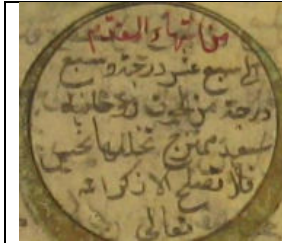 من انتهاء المقدم
الى سبع عشر درجة وسبع
درجة من الحوت روحانية
سعد ممتزج تخللها نحس
فلا تصلح الا لذكر الله
تعالى